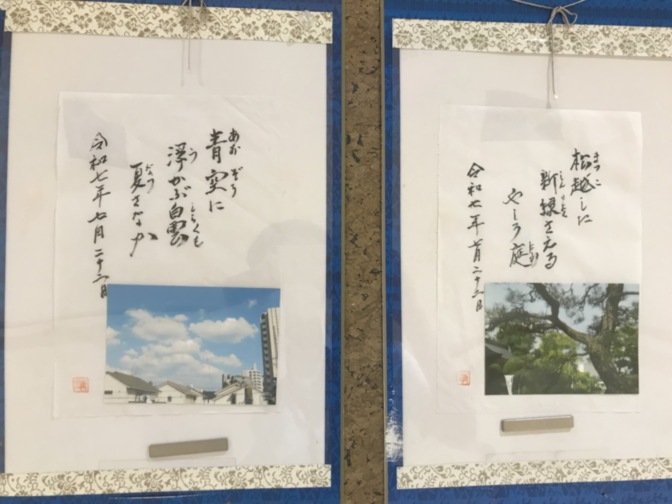 青空に
あおぞら
浮かぶ白雲
う しらくも
夏さなか
なつ
令和七年七月二十二日
松越しに
まつこ
新緑さえる
しんりょく
やしろ庭
にわ
令和七年七月二十二日